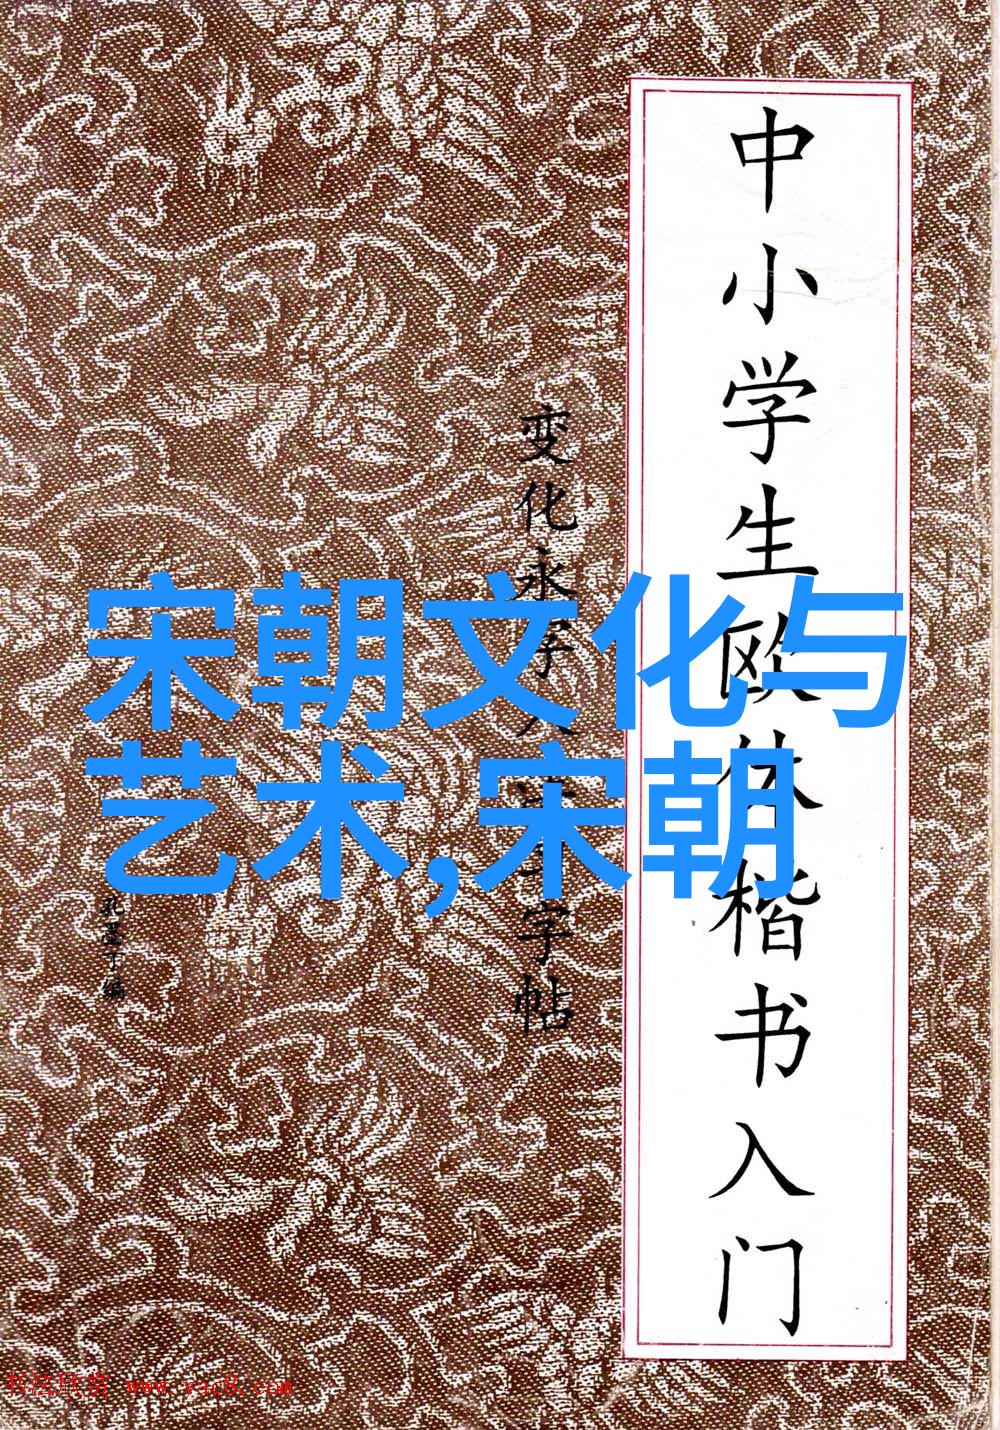 中小学生欧体楷书入门
变化永字八字帖
宋朝文化与
艺术,宋朝
孔墨丁编
书法欣赏 www.yac8.com